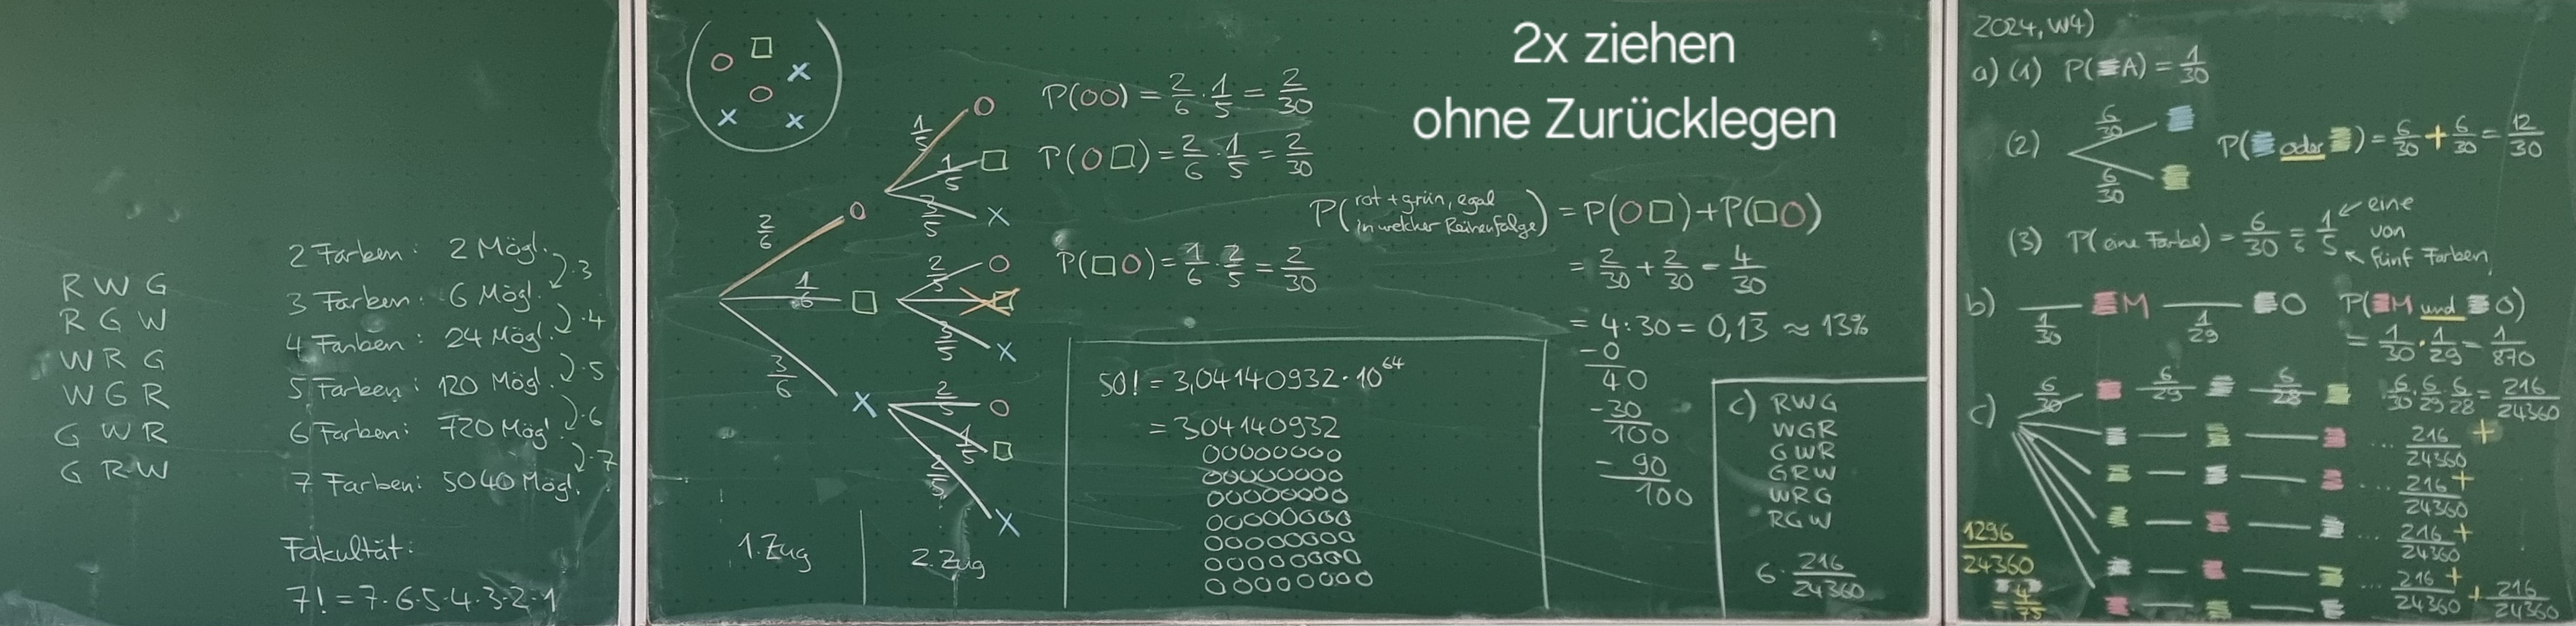 R W G
R G W
W R G
W G R
G W R
G R W
2 Farben: 2 Mögl.
·3
3 Farben: 6 Mögl.
·4
4 Farben: 24 Mögl.
·5
5 Farben: 120 Mögl.
·6
6 Farben: 720 Mögl.
·7
7 Farben: 5040 Mögl.
Fakultät:
7! = 7·6·5·4·3·2·1
2x ziehen
ohne Zurücklegen
2/6
1/6
3/6
1/5
1/5
3/5
2/5
3/5
2/5
1/5
2/5
1. Zug
2. Zug
P(○○) = 2/6 · 1/5 = 2/30
P(○□) = 2/6 · 1/5 = 2/30
P(□○) = 1/6 · 2/5 = 2/30
P(rot + grün, egal in welcher Reihenfolge) = P(○□) + P(□○)
= 2/30 + 2/30 = 4/30
= 4:30 = 0,13̅ ≈ 13%
-0
40
-30
100
-90
100
50! = 3,04140932·10^64
= 304140932
00000000
00000000
00000000
00000000
00000000
00000000
00000000
c) RWG
WGR
GWR
GRW
WRG
RGW
6 · 216/24360
2024, W4)
a) (1) P(A) = 1/30
(2) 6/30
6/30
P( oder ) = 6/30 + 6/30 = 12/30
(3) P(eine Farbe) = 6/30 = 1/5
6
eine
von
fünf Farben
b) 1/30 M 1/29 O P(M und O)
= 1/30 · 1/29 = 1/870
c) 6/30 6/29 6/28 6/30 · 6/29 · 6/28 = 216/24360
... 216/24360 +
... 216/24360 +
... 216/24360 +
... 216/24360 + + 216/24360
1296/24360
= 4/75